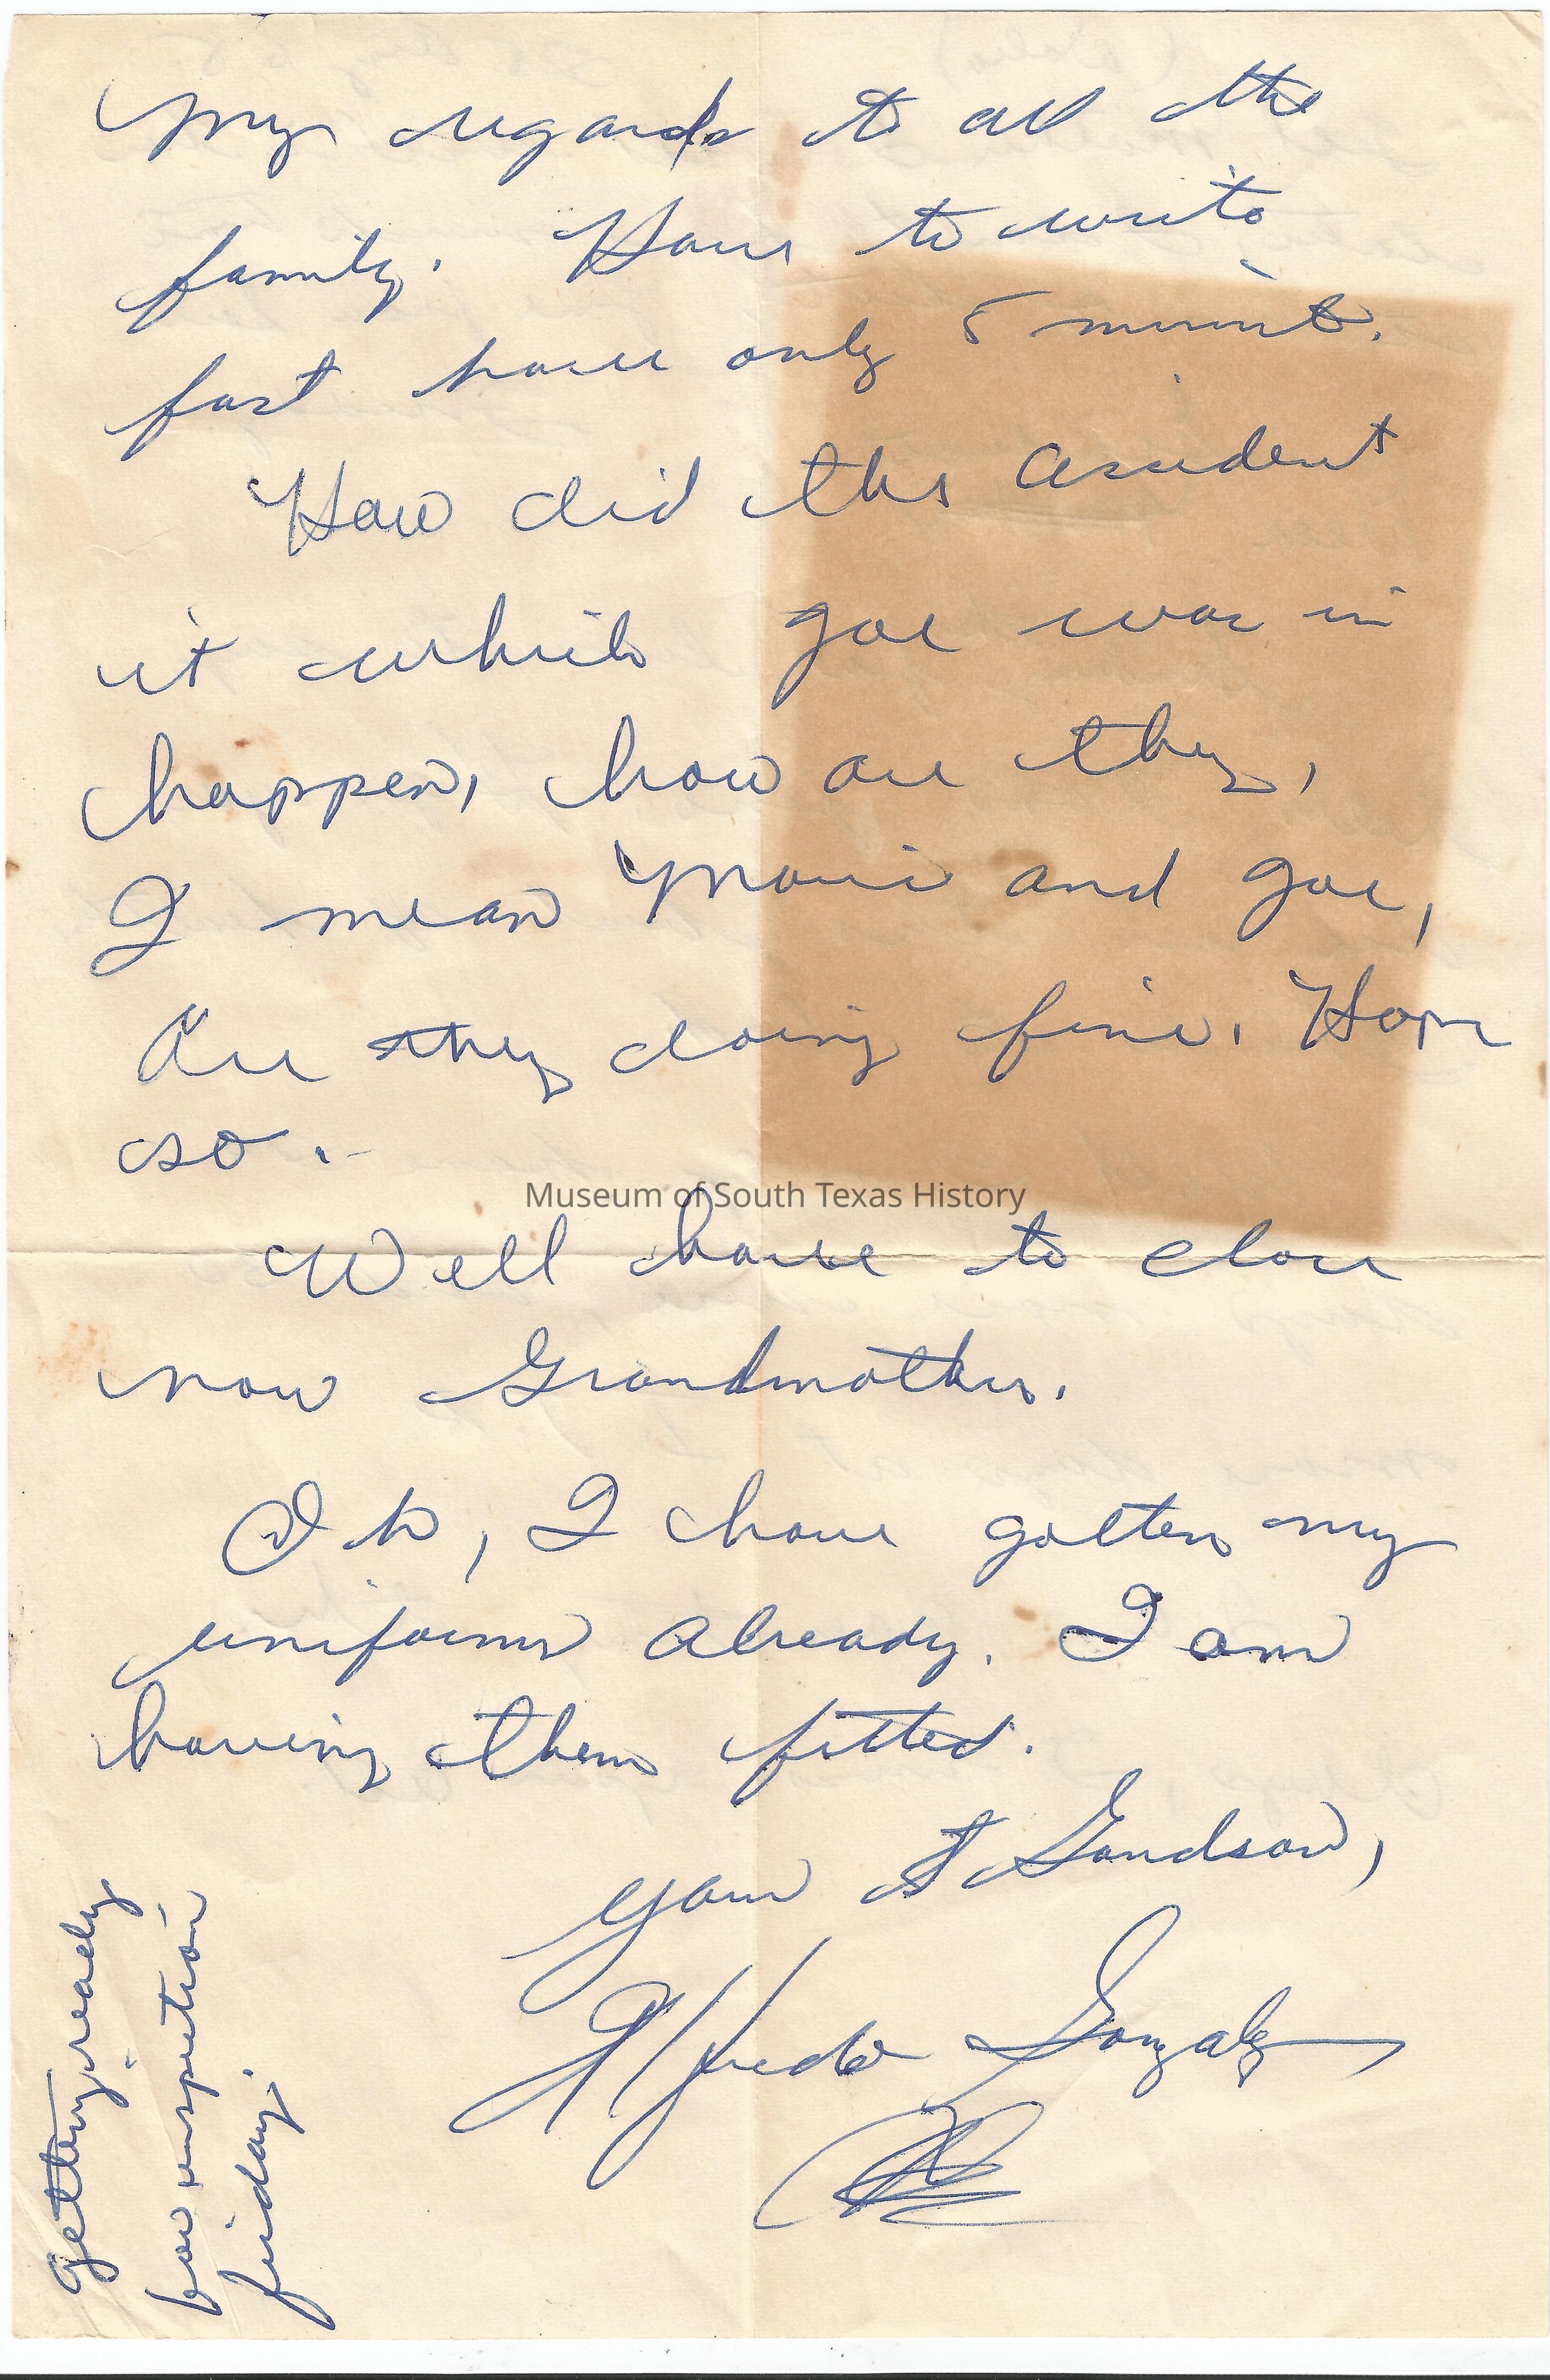 My regards to all the
family. Have to write
fast have only 5 minute.
How did the accident
it which Joe was in
happen, how are they,
I mean Marie and Joe,
Are they doing fine. Hope
so.
Museum of South Texas History
Well have to close
now Grandmother.
Oh, I have gotten my
uniforms already. I am
having them fitted.
Your Gandson,
Alfredo Gonzalez
getting ready
for inspection
friday.